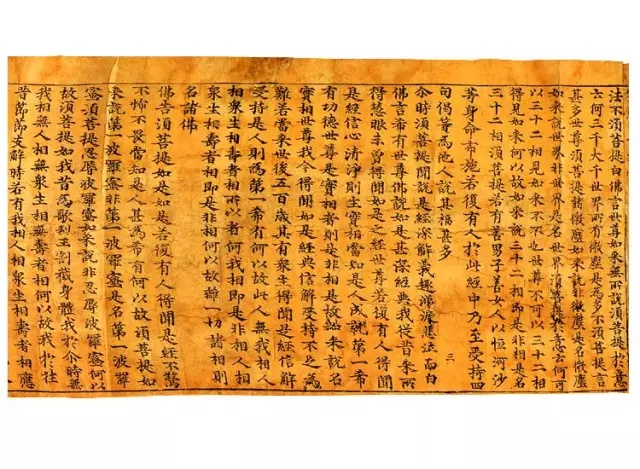 法不須菩提白佛言世尊如來無所說須菩提於意
云何三千大千世界所有微塵是為多不須菩提言
甚多世尊須菩提諸微塵如來說非微塵是名微塵
如來說世界非世界是名世界須菩提於意云何可
以三十二相見如來不不也世尊不可以三十二相
得見如來何以故如來說三十二相即是非相是名
三十二相須菩提若有善男子善女人以恒河沙
等身命布施若復有人於此經中乃至受持四
句偈等為他人說其福甚多
三
尒時須菩提聞說是經深解義趣涕淚悲泣而白
佛言希有世尊佛說如是甚深經典我從昔來所
得慧眼未曾得聞如是之經世尊若復有人得聞
是經信心清淨則生實相當知是人成就第一希
有功德世尊是實相者則是非相是故如來說名
實相世尊我今得聞如是經典信解受持不足為
難若當來世後五百歲其有衆生得聞是經信解
受持是人則為第一希有何以故此人無我相人
相衆生相壽者相所以者何我相即是非相人相
衆生相壽者相即是非相何以故離一切諸相則
名諸佛
佛告須菩提如是如是若復有人得聞是經不驚
不怖不畏當知是人甚為希有何以故須菩提如
來說第一波羅蜜非第一波羅蜜是名第一波羅
蜜須菩提忍辱波羅蜜如來說非忍辱波羅蜜何以
故須菩提如我昔為歌利王割截身體我於尒時無
我相無人相無衆生相無壽者相何以故我於往
昔節節支解時若有我相人相衆生相壽者相應